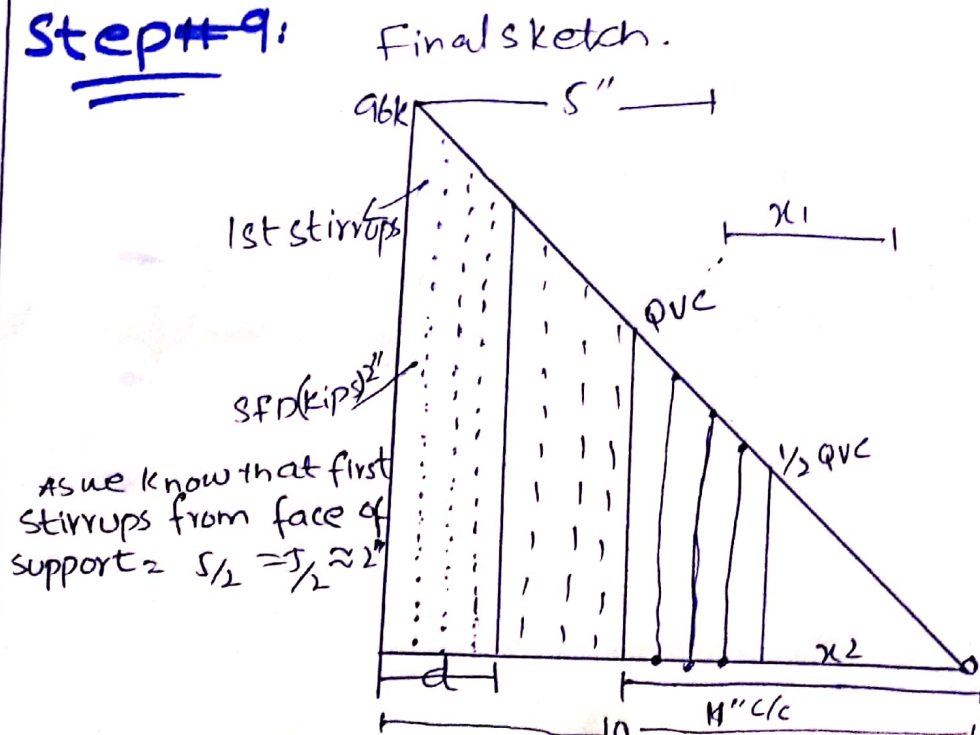 Step#9: Final sketch.
96k 5"
1st stirrups
x1
QVC
SFD(kips) 2"
1/2 QVC
As we know that first
stirrups from face of
support = S/2 = 5/2 ≈ 2"
x2
d
11" c/c
10